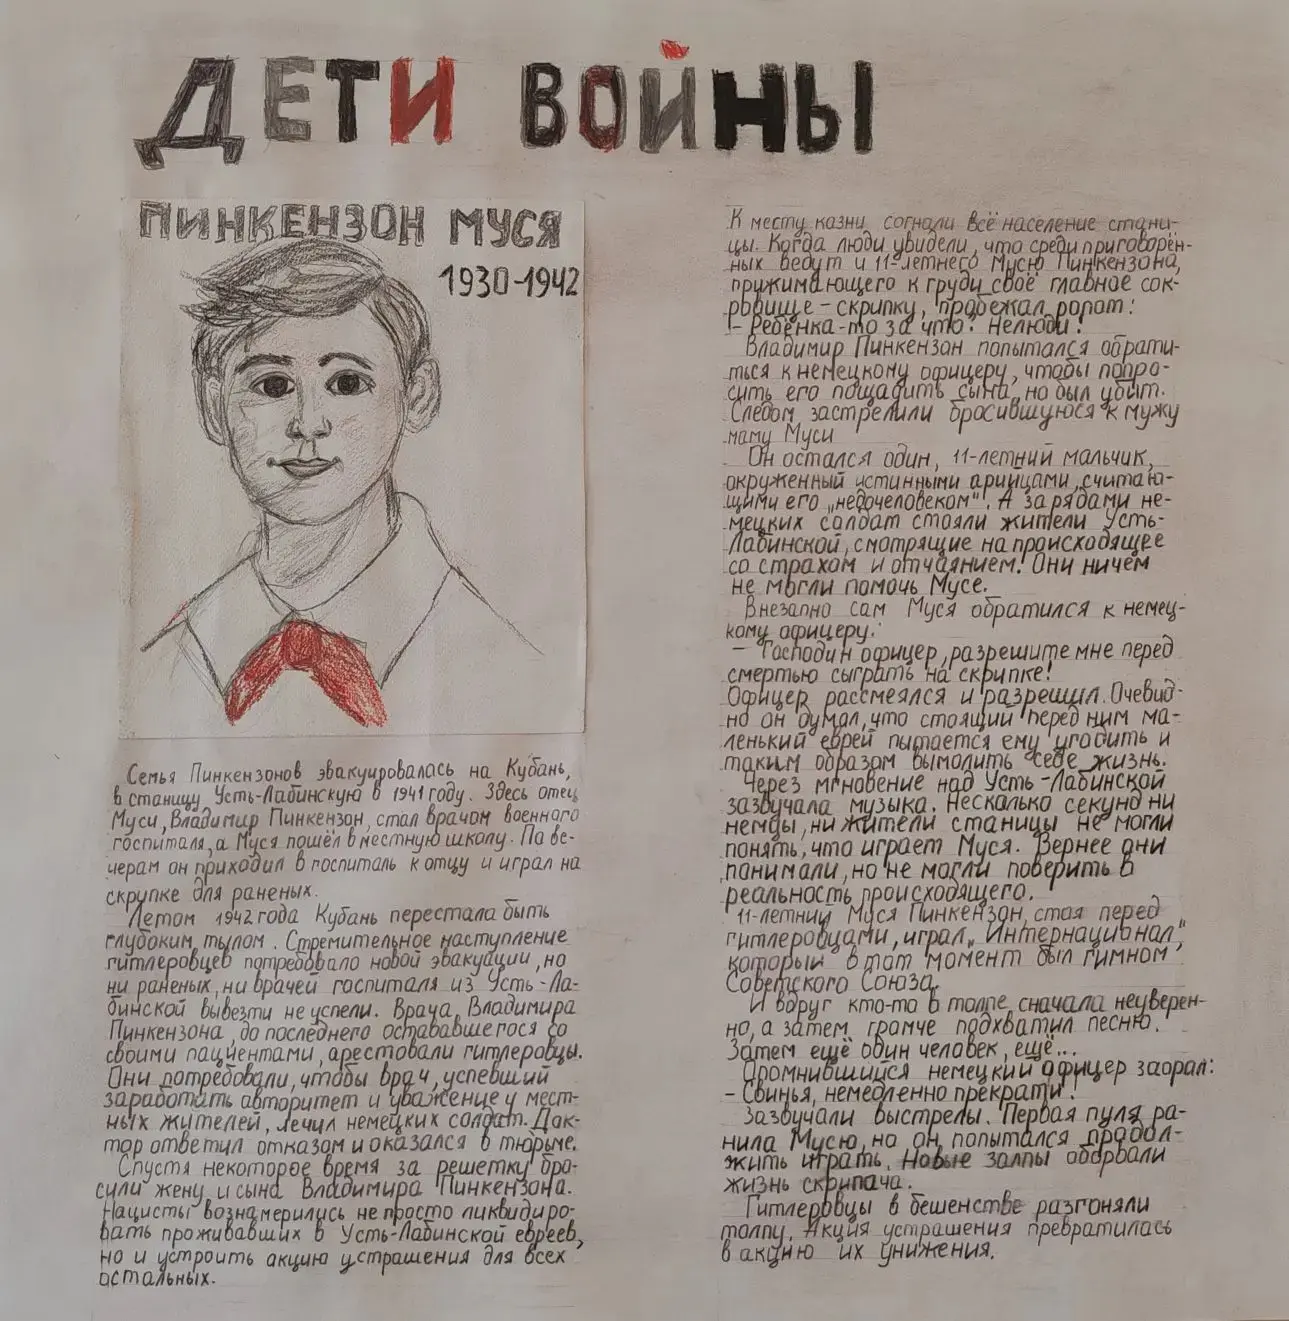 ДЕТИ ВОЙНЫ
ПИНКЕНЗОН МУСЯ
1930-1942
Семья Пинкензонов эвакуировалась на Кубань,
в станицу Усть-Лабинскую в 1941 году. Здесь отец
Муси, Владимир Пинкензон, стал врачом военного
госпиталя, а Муся пошёл в местную школу. По ве-
черам он приходил в госпиталь к отцу и играл на
скрипке для раненых.
Летом 1942 года Кубань перестала быть
глубоким тылом. Стремительное наступление
гитлеровцев потребовало новой эвакуации, но
ни раненых, ни врачей госпиталя из Усть-Ла-
бинской вывезти не успели. Врача Владимира
Пинкензона, до последнего остававшегося со
своими пациентами, арестовали гитлеровцы.
Они потребовали, чтобы врач, успевший
заработать авторитет и уважение у мест-
ных жителей, лечил немецких солдат. Док-
тор ответил отказом и оказался в тюрьме.
Спустя некоторое время за решетку бро-
сили жену и сына Владимира Пинкензона.
Нацисты вознамерились не просто ликвидиро-
вать проживавших в Усть-Лабинской евреев,
но и устроить акцию устрашения для всех
остальных.
К месту казни согнали всё население стани-
цы. Когда люди увидели, что среди приговорён-
ных ведут и 11-летнего Мусю Пинкензона,
прижимающего к груди своё главное сок-
ровище – скрипку, пробежал ропот:
– Ребёнка-то за что? Нелюди!
Владимир Пинкензон попытался обрати-
ться к немецкому офицеру, чтобы попро-
сить его пощадить сына, но был убит.
Следом застрелили бросившуюся к мужу
маму Муси
Он остался один, 11-летний мальчик,
окруженный истинными арийцами, считаю-
щими его „недочеловеком". А за рядами не-
мецких солдат стояли жители Усть-
Лабинской, смотрящие на происходящее
со страхом и отчаянием. Они ничем
не могли помочь Мусе.
Внезапно сам Муся обратился к немец-
кому офицеру:
– Господин офицер, разрешите мне перед
смертью сыграть на скрипке!
Офицер рассмеялся и разрешил. Очевид-
но он думал, что стоящий перед ним ма-
ленький еврей пытается ему угодить и
таким образом вымолить себе жизнь.
Через мгновение над Усть-Лабинской
зазвучала музыка. Несколько секунд ни
немцы, ни жители станицы не могли
понять, что играет Муся. Вернее они
понимали, но не могли поверить в
реальность происходящего.
11-летний Муся Пинкензон, стоя перед
гитлеровцами, играл „Интернационал",
который в тот момент был гимном
Советского Союза.
И вдруг кто-то в толпе, сначала неуверен-
но, а затем громче подхватил песню.
Затем ещё один человек, ещё...
Опомнившийся немецкий офицер заорал:
– Свинья, немедленно прекрати!
Зазвучали выстрелы. Первая пуля ра-
нила Мусю, но он попытался продол-
жить играть. Новые залпы оборвали
жизнь скрипача.
Гитлеровцы в бешенстве разгоняли
толпу. Акция устрашения превратилась
в акцию их унижения.